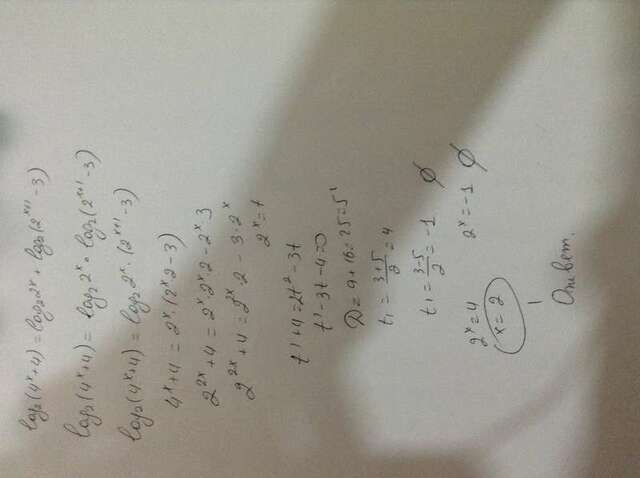 log₂(4ˣ+4) = log₂2ˣ + log₂(2ˣ⁺¹-3)
log₂(4ˣ+4) = log₂2ˣ · log₂(2ˣ⁺¹-3)
log₂(4ˣ+4) = log₂2ˣ·(2ˣ⁺¹-3)
4ˣ+4 = 2ˣ·(2ˣ2-3)
2²ˣ+4 = 2ˣ·2ˣ·2-2ˣ3
2²ˣ+4 = 2²ˣ·2 - 3·2ˣ
2ˣ=t
t²+4=2t²-3t
t²-3t-4=0
D=9+16=25=5²
t₁ = (3+5)/2 = 4
t₁ = (3-5)/2 = -1 ∅
2ˣ=4 2ˣ=-1 ∅
x=2
Ответ.